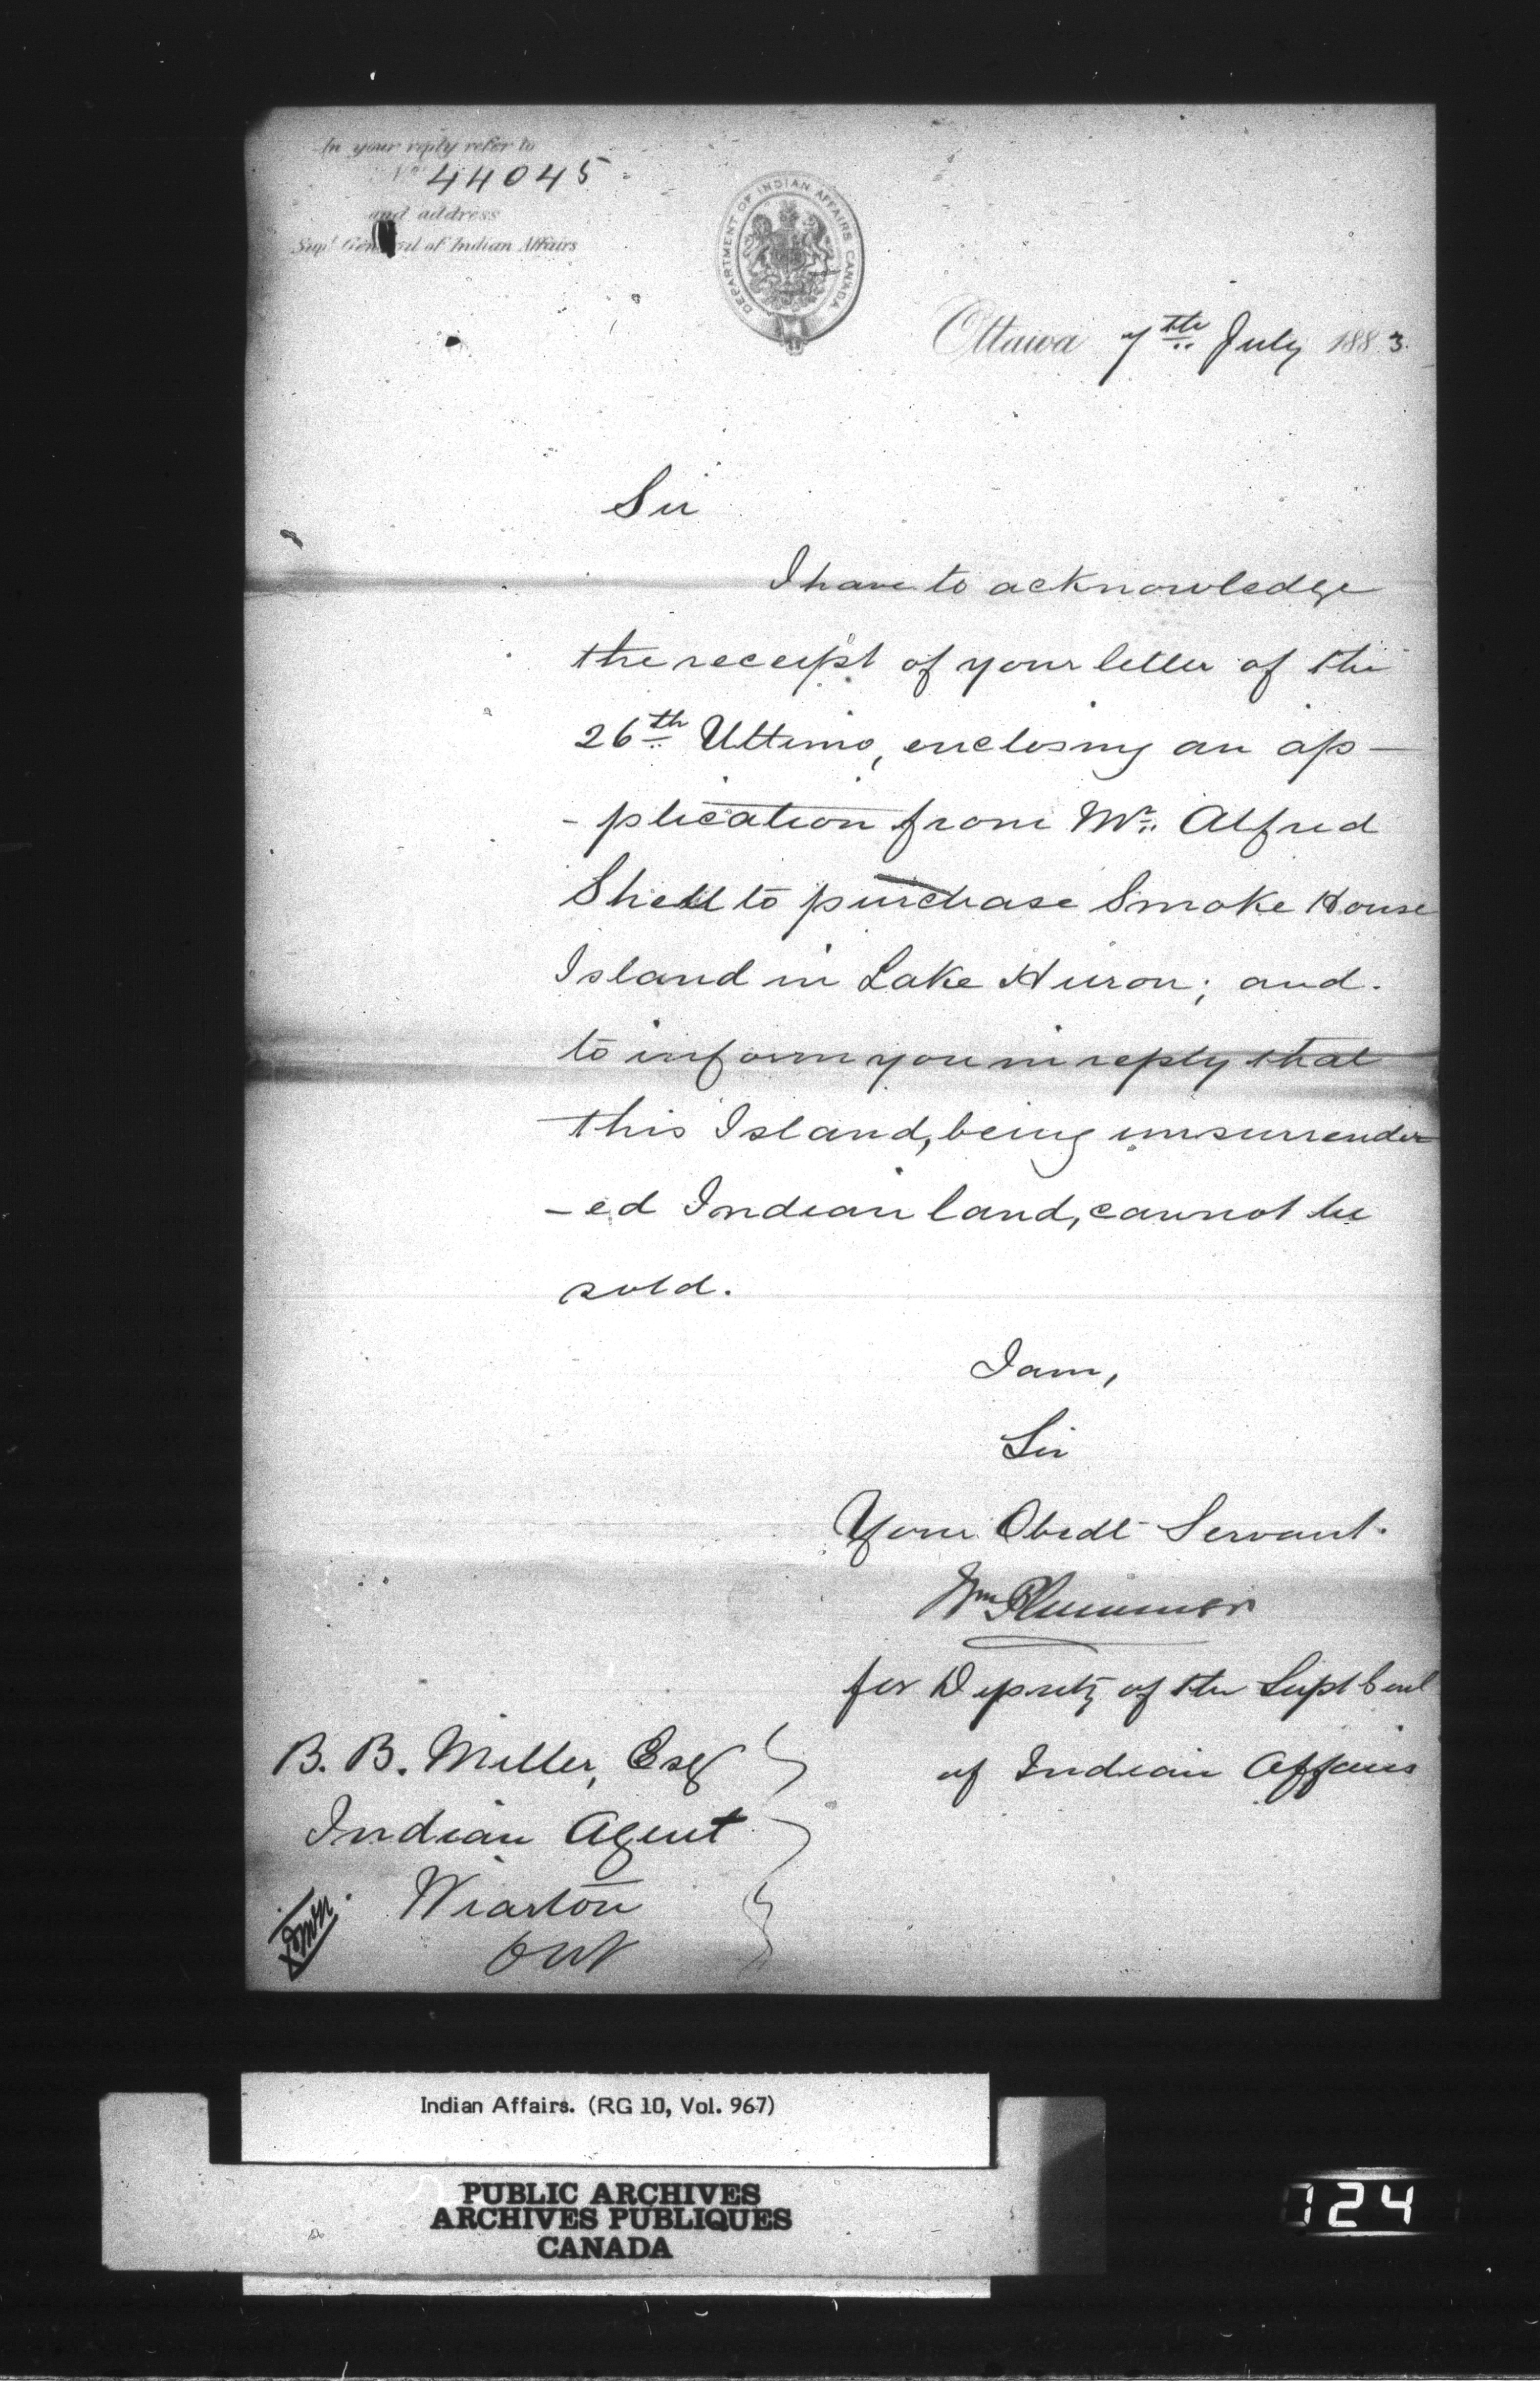 In your reply refer to
No. 44045
and address
Supt. General of Indian Affairs
DEPARTMENT OF INDIAN AFFAIRS CANADA
Ottawa 7th July 1883.
Sir
I have to acknowledge
the receipt of your letter of the
26th Ultimo, enclosing an ap-
-plication from Mr. Alfred
Shell to purchase Smoke House
Island in Lake Huron; and
to inform you in reply that
this Island, being unsurrender
-ed Indian land, cannot be
sold.
I am,
Sir
Your Obedt Servant.
Wm Plummer
for Deputy of the Supt Genl
of Indian Affairs
B. B. Miller, Esq
Indian Agent
Wiarton
Ont
Indian Affairs. (RG 10, Vol. 967)
PUBLIC ARCHIVES
ARCHIVES PUBLIQUES
CANADA
124